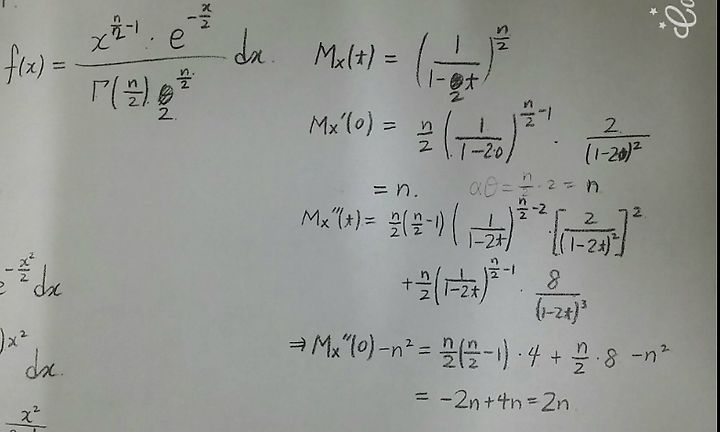 f(x) = x^{n/2-1} · e^{-x/2} / Γ(n/2) 2^{n/2} dx.
M_x(t) = (1/(1-2t))^{n/2}
M_x'(0) = n/2 (1/(1-2·0))^{n/2-1} · 2/(1-20)^2
= n. αθ = n/2 · 2 = n
M_x''(t) = n/2 (n/2-1) (1/(1-2t))^{n/2-2} · [2/(1-2t)^2]^2
+ n/2 (1/(1-2t))^{n/2-1} · 8/(1-2t)^3
⇒ M_x''(0) - n^2 = n/2 (n/2-1) · 4 + n/2 · 8 - n^2
= -2n + 4n = 2n
e^{-x^2/2} dx
)x^2
dx.
x^2